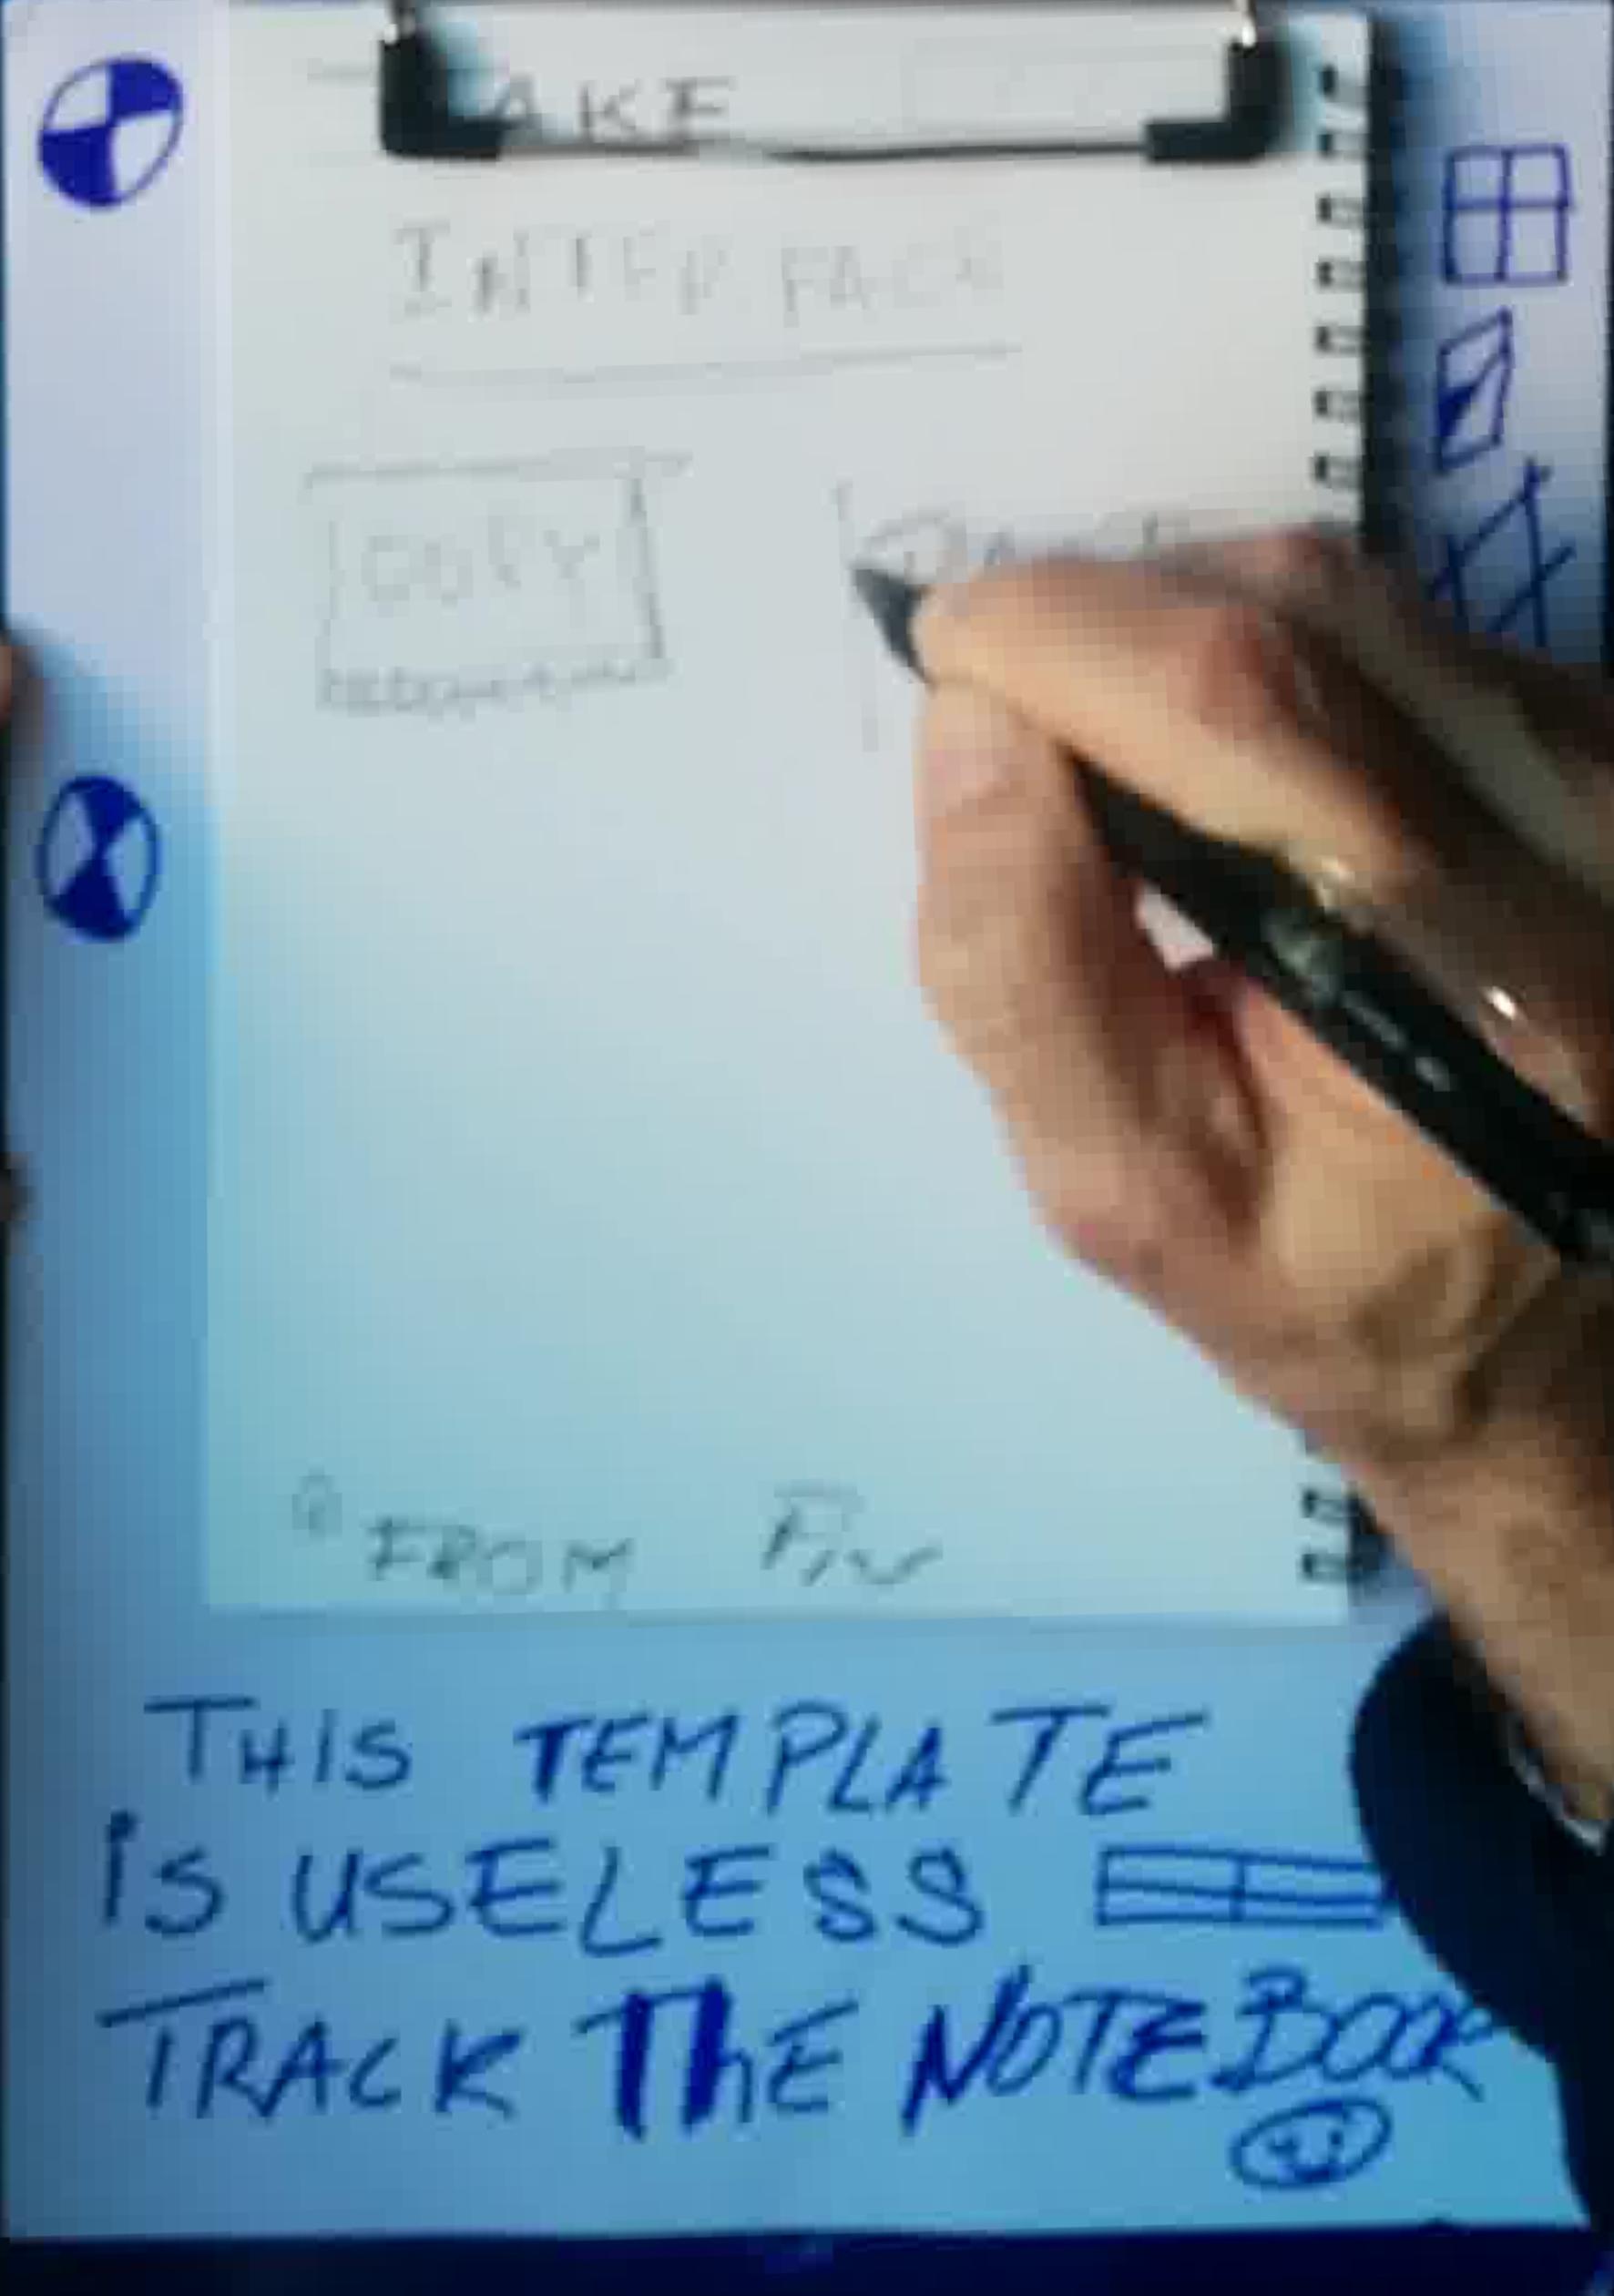 AKE
INTERFACE
COPY
FROM
THIS TEMPLATE
is USELESS
TRACK ThE NOTEBOOK